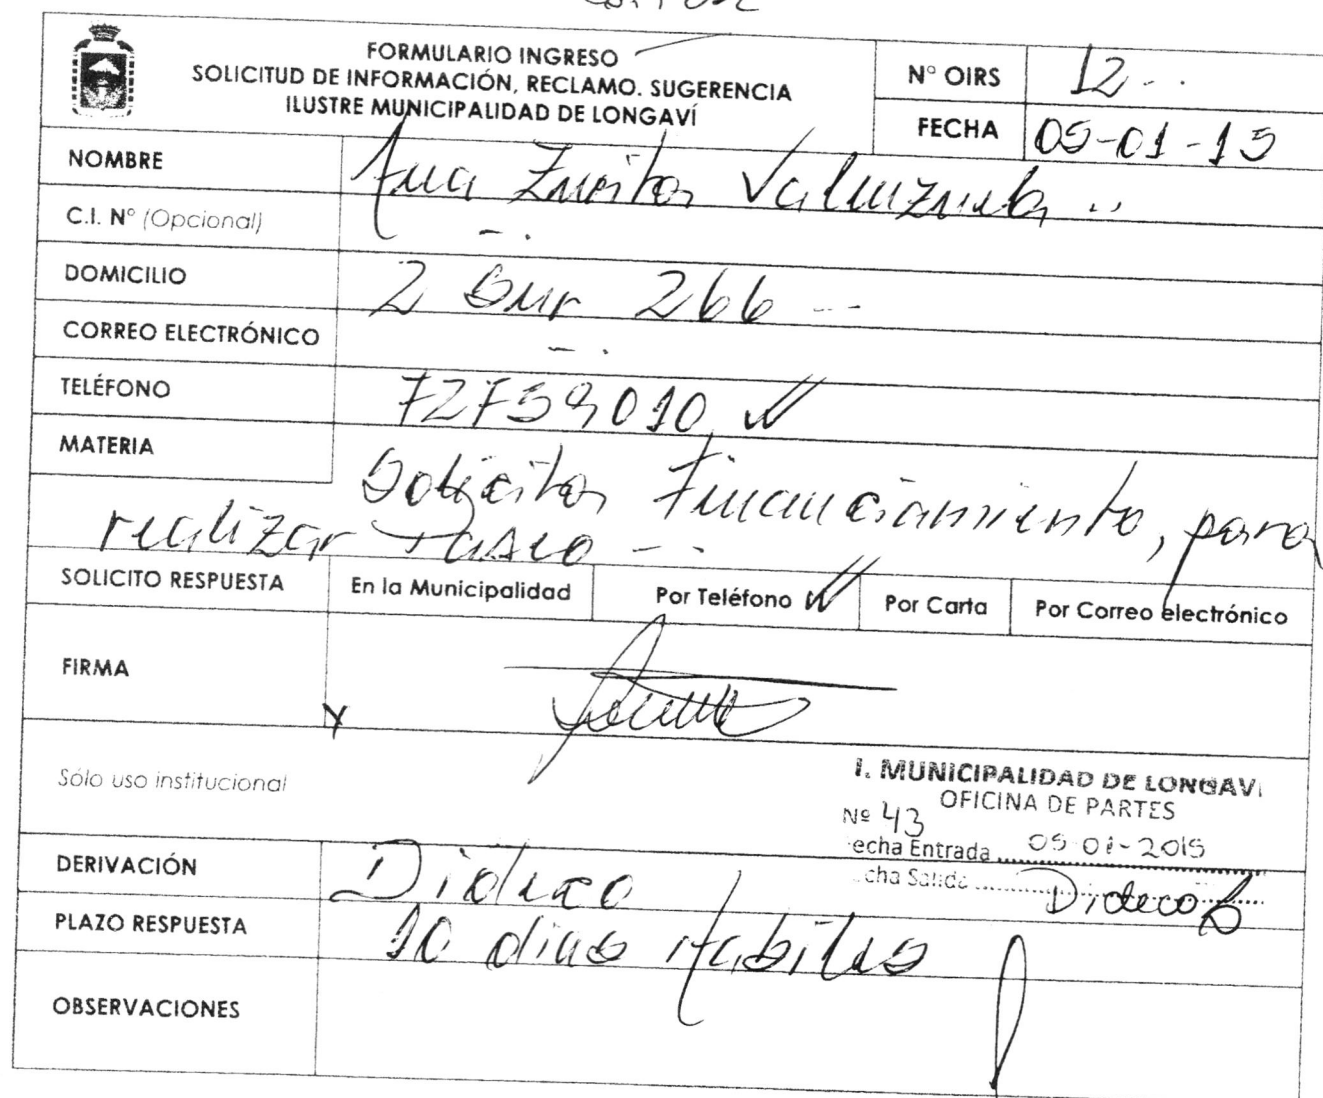 FORMULARIO INGRESO
SOLICITUD DE INFORMACIÓN, RECLAMO. SUGERENCIA
ILUSTRE MUNICIPALIDAD DE LONGAVÍ
N° OIRS 12-..
FECHA 05-01-15
NOMBRE Ana Zurita Valenzuela ..
C.I. N° (Opcional) -.
DOMICILIO 2 Sur 266 --
CORREO ELECTRÓNICO -.
TELÉFONO 72759010
MATERIA Solicita Financiamiento, para
realizar Paseo --
SOLICITO RESPUESTA En la Municipalidad Por Teléfono Por Carta Por Correo electrónico
FIRMA
Sólo uso institucional
I. MUNICIPALIDAD DE LONGAVI
OFICINA DE PARTES
Nº 43
echa Entrada 05-01-2015
cha Salida Dideco
DERIVACIÓN Dideco
PLAZO RESPUESTA 10 dias Habiles
OBSERVACIONES